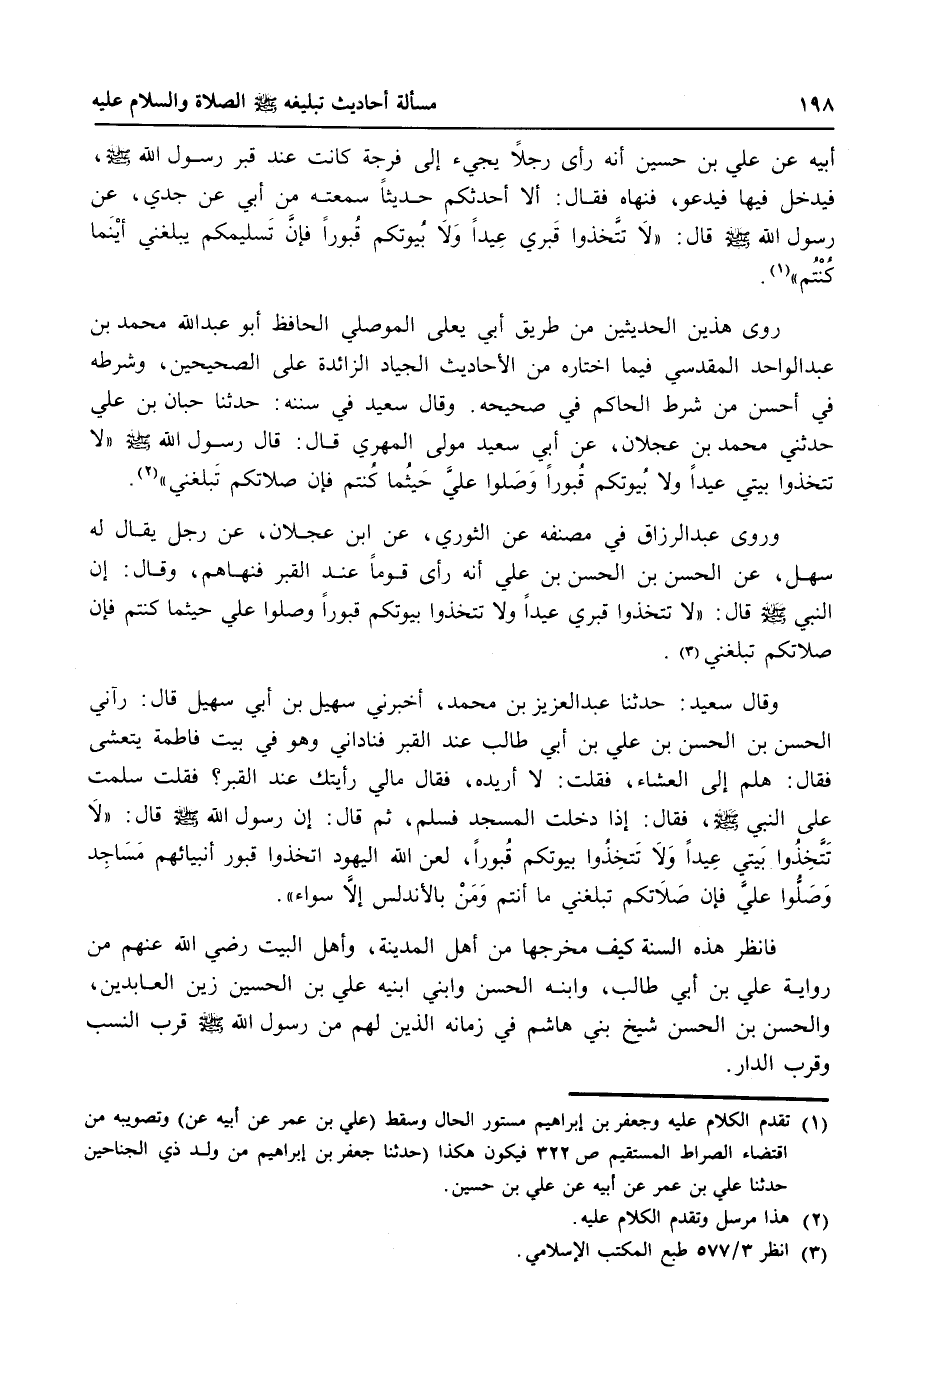 ١٩٨ مسألة أحاديث تبليغه ﷺ الصلاة والسلام عليه
أبيه عن علي بن حسين أنه رأى رجلاً يجيء إلى فرجة كانت عند قبر رسول الله ﷺ،
فيدخل فيها فيدعو، فنهاه فقال: ألا أحدثكم حديثاً سمعته من أبي عن جدي، عن
رسول الله ﷺ قال: «لَا تتَّخذوا قَبري عِيداً وَلَا بُيوتكم قُبوراً فإنَّ تَسليمكم يبلغني أيْنَما
كُنْتُم»(١).
روى هذين الحديثين من طريق أبي يعلى الموصلي الحافظ أبو عبدالله محمد بن
عبدالواحد المقدسي فيما اختاره من الأحاديث الجياد الزائدة على الصحيحين، وشرطه
في أحسن من شرط الحاكم في صحيحه. وقال سعيد في سننه: حدثنا حبان بن علي
حدثني محمد بن عجلان، عن أبي سعيد مولى المهري قال: قال رسول الله ﷺ «لا
تتخذوا بيتي عيداً ولا بُيوتكم قُبوراً وَصَلوا عليَّ حَيثُما كُنتم فإن صلاتكم تَبلغني»(٢).
وروى عبدالرزاق في مصنفه عن الثوري، عن ابن عجلان، عن رجل يقال له
سهل، عن الحسن بن الحسن بن علي أنه رأى قوماً عند القبر فنهاهم، وقال: إن
النبي ﷺ قال: «لا تتخذوا قبري عيداً ولا تتخذوا بيوتكم قبوراً وصلوا علي حيثما كنتم فإن
صلاتكم تبلغني (٣).
وقال سعيد: حدثنا عبدالعزيز بن محمد، أخبرني سهيل بن أبي سهيل قال: رآني
الحسن بن الحسن بن علي بن أبي طالب عند القبر فناداني وهو في بيت فاطمة يتعشى
فقال: هلم إلى العشاء، فقلت: لا أريده، فقال مالي رأيتك عند القبر؟ فقلت سلمت
على النبي ﷺ، فقال: إذا دخلت المسجد فسلم، ثم قال: إن رسول الله ﷺ قال: «لَا
تَتَّخِذُوا بَيتي عِيداً وَلَا تَتخِذُوا بيوتكم قُبوراً، لعن الله اليهود اتخذوا قبور أنبيائهم مَسَاجِد
وَصَلُّوا عليَّ فإن صَلَاتكم تبلغني ما أنتم وَمَنْ بالأندلس إلاَّ سواء».
فانظر هذه السنة كيف مخرجها من أهل المدينة، وأهل البيت رضي الله عنهم من
رواية علي بن أبي طالب، وابنه الحسن وابني ابنيه علي بن الحسين زين العابدين،
والحسن بن الحسن شيخ بني هاشم في زمانه الذين لهم من رسول الله ﷺ قرب النسب
وقرب الدار.
(١) تقدم الكلام عليه وجعفر بن إبراهيم مستور الحال وسقط (علي بن عمر عن أبيه عن) وتصويبه من
اقتضاء الصراط المستقيم ص ٣٢٢ فيكون هكذا (حدثنا جعفر بن إبراهيم من ولد ذي الجناحين
حدثنا علي بن عمر عن أبيه عن علي بن حسين.
(٢) هذا مرسل وتقدم الكلام عليه.
(٣) انظر ٥٧٧/٣ طبع المكتب الإسلامي.